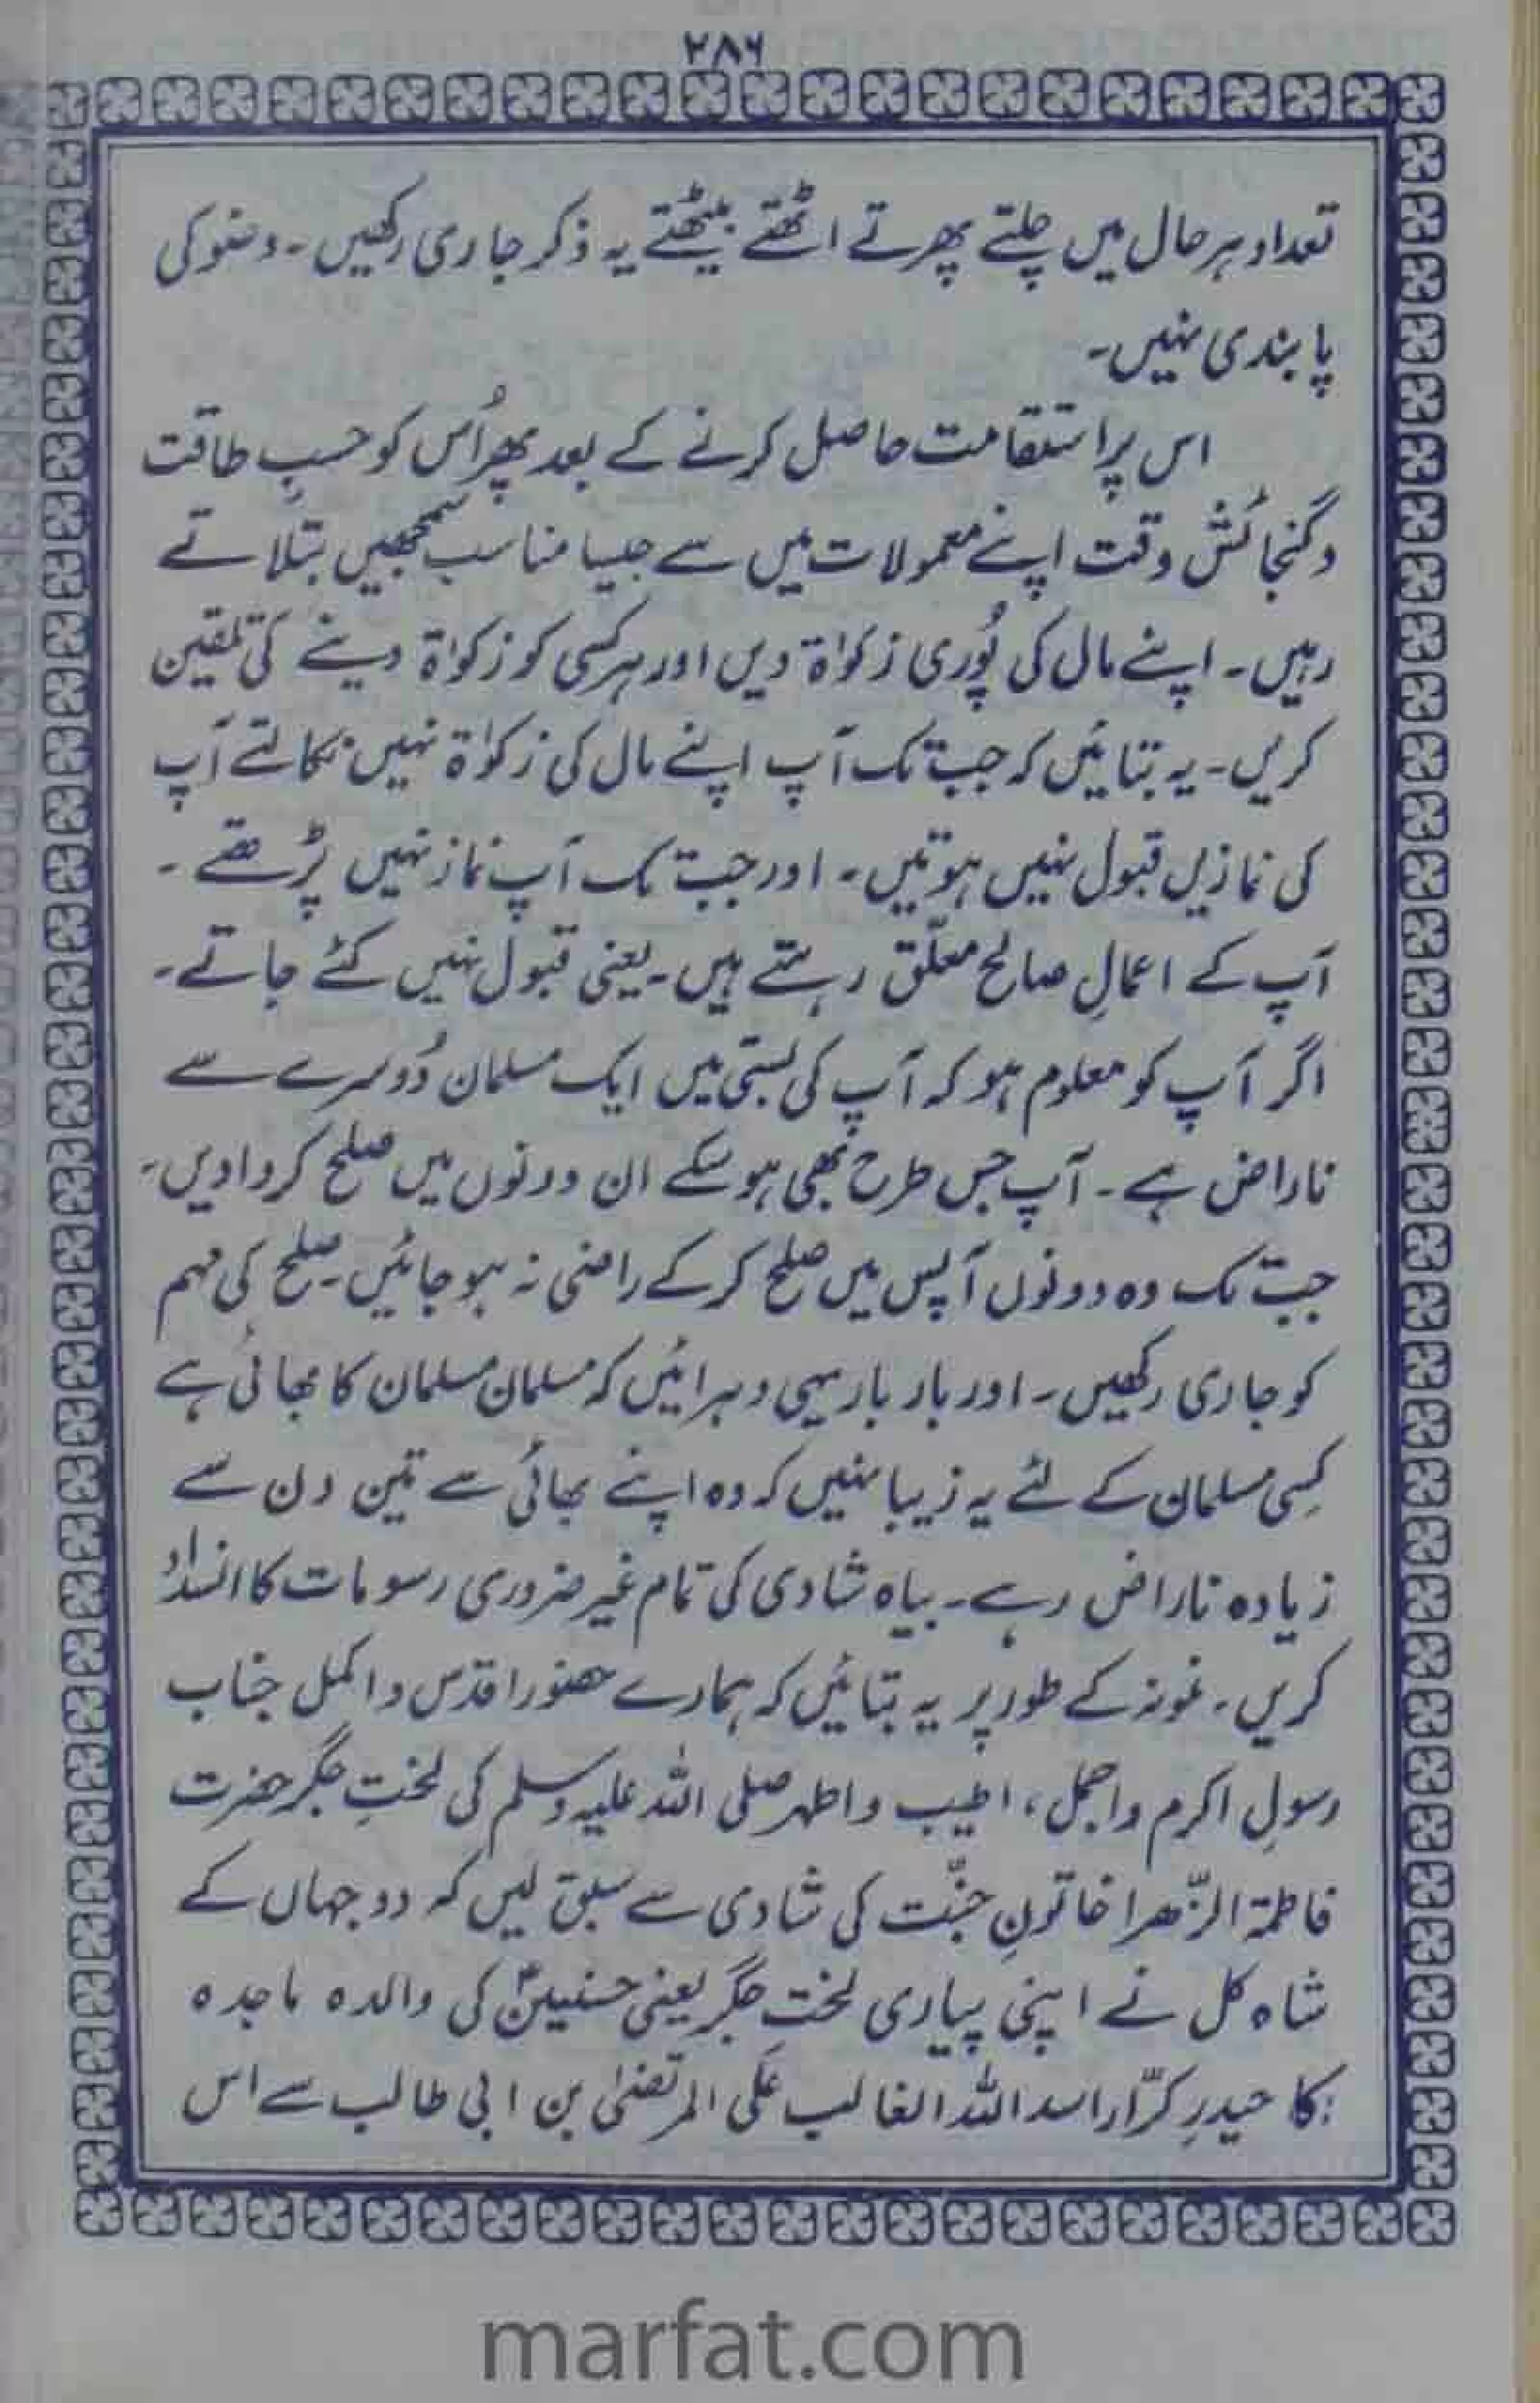 ۲۸۶
تعداد ہر حال میں چلتے پھرتے اٹھتے بیٹھتے یہ ذکر جاری رکھیں۔ وضو کی
پابندی نہیں۔
اس پر استقامت حاصل کرنے کے بعد پھر اُس کو حسبِ طاقت
و گنجائش وقت اپنے معمولات میں سے جیسا مناسب سمجھیں بتلاتے
رہیں۔ اپنے مال کی پُوری زکوٰۃ دیں اور ہر کسی کو زکوٰۃ دینے کی تلقین
کریں۔ یہ بتائیں کہ جب تک آپ اپنے مال کی زکوٰۃ نہیں نکالتے آپ
کی نمازیں قبول نہیں ہوتیں۔ اور جب تک آپ نماز نہیں پڑھتے۔
آپ کے اعمالِ صالح معلّق رہتے ہیں۔ یعنی قبول نہیں کئے جاتے۔
اگر آپ کو معلوم ہو کہ آپ کی بستی میں ایک مسلمان دُوسرے سے
ناراض ہے۔ آپ جس طرح بھی ہو سکے ان دونوں میں صلح کروا دیں۔
جب تک وہ دونوں آپس میں صلح کر کے راضی نہ ہو جائیں۔ صلح کی مہم
کو جاری رکھیں۔ اور بار بار یہی دہرائیں کہ مسلمان مسلمان کا بھائی ہے
کِسی مسلمان کے لئے یہ زیبا نہیں کہ وہ اپنے بھائی سے تین دن سے
زیادہ ناراض رہے۔ بیاہ شادی کی تمام غیر ضروری رسومات کا انسداد
کریں۔ نمونہ کے طور پر یہ بتائیں کہ ہمارے حضور اقدس و اکمل جناب
رسولِ اکرم و اجمل، اطیب و اطہر صلی اللہ علیہ وسلم کی لختِ جگر حضرت
فاطمۃ الزّھرا خاتونِ جنّت کی شادی سے سبق لیں کہ دو جہاں کے
شاہ کل نے اپنی پیاری لختِ جگر یعنی حسنینؓ کی والدہ ماجدہ
کا حیدرِ کرّار اسد اللہ الغالب عَلی المرتضیٰ بن ابی طالب سے اس
marfat.com